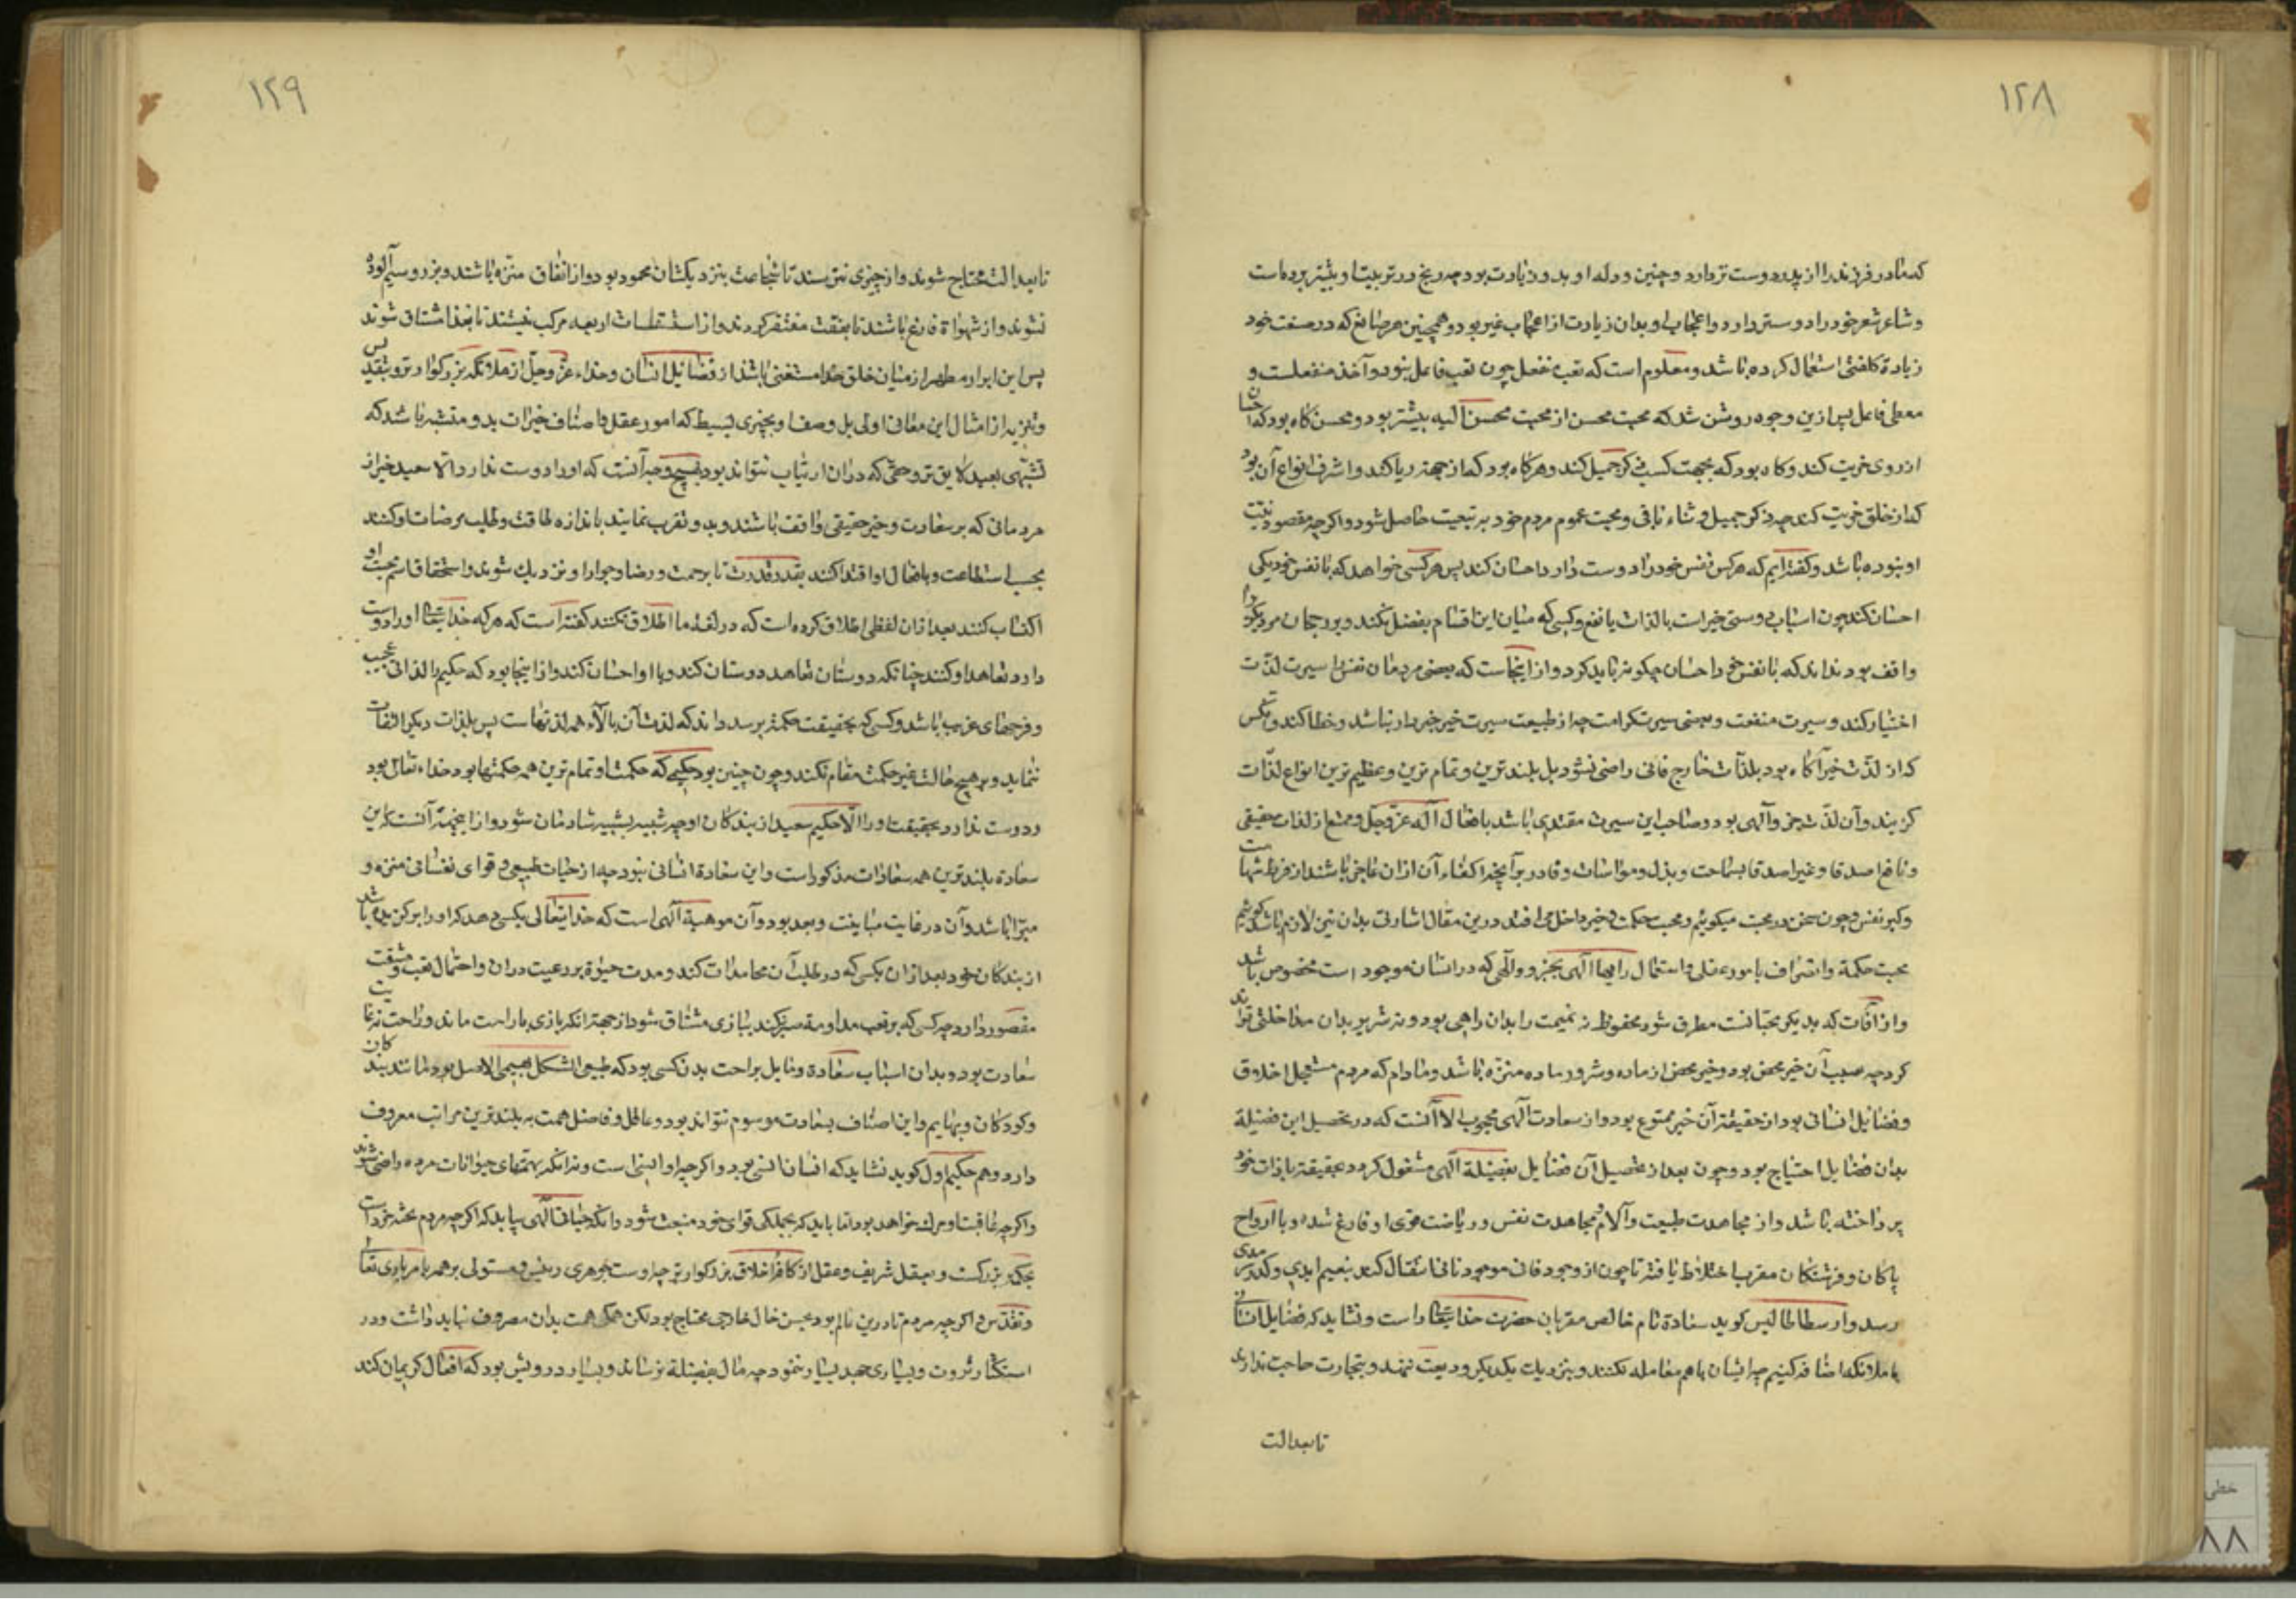 ۱۲۸
که مادر فرزند را از پدر دوست تر دارد و چنین و وله او بدو زیادت بود چه رنج در تربیت او بیشتر برده است
و شاعر شعر خود را دوستر دارد و اعجاب او بدان زیادت از اعجاب غیر بود و همچنین هر صانع که در صنعت خود
زیادة کلفتی استعمال کرده باشد و معلوم است که تعب منفعل چون تعب فاعل نبود و آخذ منفعلست و
معطی فاعل پس ازین وجوه روشن شد که محبت محسن از محبت محسن الیه بیشتر بود و محسن گاه بود که احسان
از روی حریت کند و گاه بود که بجهت کسب ذکر جمیل کند و گاه بود که از جهة ریا کند و اشرف انواع آن بود
که از خلق حریت کند چه ذکر جمیل و ثناء باقی و محبت عموم مردم خود به تبعیت حاصل شود و اگرچه مقصود نیت
او نبوده باشد و گفته ایم که هر کس نفس خود را دوست دارد احسان کند پس هر کسی خواهد که با نفس خود نیکی
احسان کند چون اسباب دوستی خیراست یا لذات یا نفع و کسی که میان این اقسام تفضیل نکند و بر رجحان هر یکی
واقف بود نداند که با نفس خود احسان چگونه باید کرد و از اینجاست که بعضی مردمان نفس را سیرت لذت
اختیار کند و سیرت منفعت و بعضی سیرت کرامت چه از طبیعت سیرت خیر خبردار نباشد و خطا کند و کس
که از لذت خیر آگاه بود بلذات خارج فانی راضی نشود بل بلند ترین و تمام ترین و عظیم ترین انواع لذات
گزیند و آن لذت جزو آلهی بود و صاحب این سیرت مقتدی باشد بافعال آله عز و جل و متمتع از لذات حقیقی
و نافع اصدقا و غیر اصدقا بسماحت و بذل و مواسات و قادر بر آنچه اکفاء آن ازان عاجز باشند از فرط شهامت
و کبر نفس و چون سخن در محبت میگوئیم و محبت حکمت و خیر داخل می افتد درین مقال اشارتی بدان نیز لازم باشد گوئیم
محبت حکمة و انصراف بامور عقلی و استعمال رایها آلهی بجزو آلهی که در انسان موجود است مخصوص باشد
و از آفات که بدیگر محبتات متطرق شود محفوظ نه نمیمت را بدان راهی بود و نه شریر بدان مداخلتی تواند
کرد چه سبب آن خیر محض بود و خیر محض از ماده و شرور ماده منزه باشد و مادام که مردم مستعمل اخلاق
و فضایل انسانی بود از حقیقة آن خیر ممنوع بود و از سعادت آلهی محجوب الا آنست که در تحصیل این فضیلة
بدان فضایل احتیاج بود و چون بعد از تحصیل آن فضایل بفضیلة آلهی مشغول گردد بحقیقة با ذات خود
پرداخته باشد و از مجاهدت طبیعت و آلام و مجاهدت نفس و ریاضت قوی او فارغ شده و با ارواح
پاکان و فرشتگان مقرب اختلاط یافته تا چون از وجود فانی موجود باقی انتقال کند بنعیم ابدی و سرور سرمدی
رسد و ارسطاطالیس گوید سعادة تام خالص مقربان حضرت خدایتعالی راست و نشاید که فضایل انسانی
با ملائکه اضافه کنیم چه ایشان با هم معامله نکنند و بنزدیک یکدیگر ودیعت ننهند و بتجارت حاجت ندارند
تا بعدالت
۱۲۹
تا بعدالت محتاج شوند و از چیزی نترسند تا شجاعت بنزدیکشان محمود بود و از انفاق منزه باشند و بزر و سیم آلوده
نشوند و از شهوات فارغ باشند تا بعفت مفتقر گردند و از استقسات اربعه مرکب نیستند تا بغذا مشتاق شوند
پس این ابرار مطهر از میان خلق خدا مستغنی باشند از فضایل انسان و خداء عز و جل از ملائکه بزرگوارتر و بتقدیس
و تنزیه از امثال این معانی اولی بل وصف او بچیزی بسیط که امور عقل و اصناف خیرات بدو متشبه باشد که
تشبهی بعید لایق تر و حقی که دران ارتیاب نتواند بود بهیچ وجه آنست که او را دوست ندارد الا سعید خیر از
مردمانی که بر سعادت و خیر حقیقی واقف باشند و بدو تقرب نمایند باندازه طاقت و طلب مرضات او کنند
بحسب استطاعت و بافعال او اقتدا کنند بقدر قدرت تا برحمت و رضا و جوار او نزدیک شوند و استحقاق اسم محبت او
اکتساب کنند بعد ازان لفظی اطلاق کرده است که در لغة ما اطلاق نکنند گفته است که هر که خدایتعالی او را دوست
دارد تعاهد او کند چنانکه دوستان تعاهد دوستان کند و با او احسان کند و از اینجا بود که حکیم را لذاتی عجیب
و فرحهای غریب باشد و کسی که بحقیقت حکمة برسد داند که لذت آن بالای همه لذتهاست پس بلذات دیگر التفات
ننماید و بر هیچ حالت غیر حکمت مقام نکند و چون چنین بود حکیمی که حکمت او تمام ترین همه حکمتها بود خداء تعالی بود
و دوست ندارد بحقیقت او را الا حکیم سعید از بندگان او چه شبیه بشبیه شادمان شود و از اینجهة آنست که این
سعادة بلندترین همه سعادات مذکور است و این سعادة انسانی نبود چه از حیات طبیعی و قوای نفسانی منزه و
مبرا باشد و آن در غایت مباینت و بعد بود و آن موهبة آلهی است که خدایتعالی بکسی دهد که او را برگزیده باشد
از بندگان خود بعد ازان بکسی که در طلب آن مجاهدات کند و مدت حیوة بر رغبت دران و احتمال تعب و مشقت
مقصور دارد چه کسی که بر تعب مداومة صبر نکند ببازی مشتاق شود از جهة آنکه بازی براحت ماند و راحت نه غایت
سعادت بود و بدان اسباب سعادة و مایل براحت بدن کسی بود که طبیعی الشکل بهیمی الاصل بود مانند بندگان
و کودکان و بهایم و این اصناف بسعادت موسوم نتواند بود و عاقل و فاضل همت به بلندترین مراتب معروف
دارد و هم حکیم اول گوید نشاید که انسان انسی بود و اگرچه او انسی است و نه آنکه بهمتهای حیوانات مرده راضی شوند
و اگرچه عاقبت او مرگ خواهد بود اما باید که بجملگی قوای خود منبعث شود و آنکه حیات آلهی بیابد که اگرچه مردم بجثه خرد است
بحکمت بزرگست و بعقل شریف و عقل از کافه اخلاق بزرگوارتر چه اوست جوهری رئیس و مستولی بر همه بامر باری تعالی
و تقدس و اگرچه مردم تا درین عالم بود بحسن حال خارجی محتاج بود لکن همگی همت بدان مصروف نباید داشت و در
استکثار ثروت و بسیاری جهد بسیار ننمود چه مال بفضیلة نرساند و بسیار درویش بود که افعال کریمان کند
خطی
۸۸